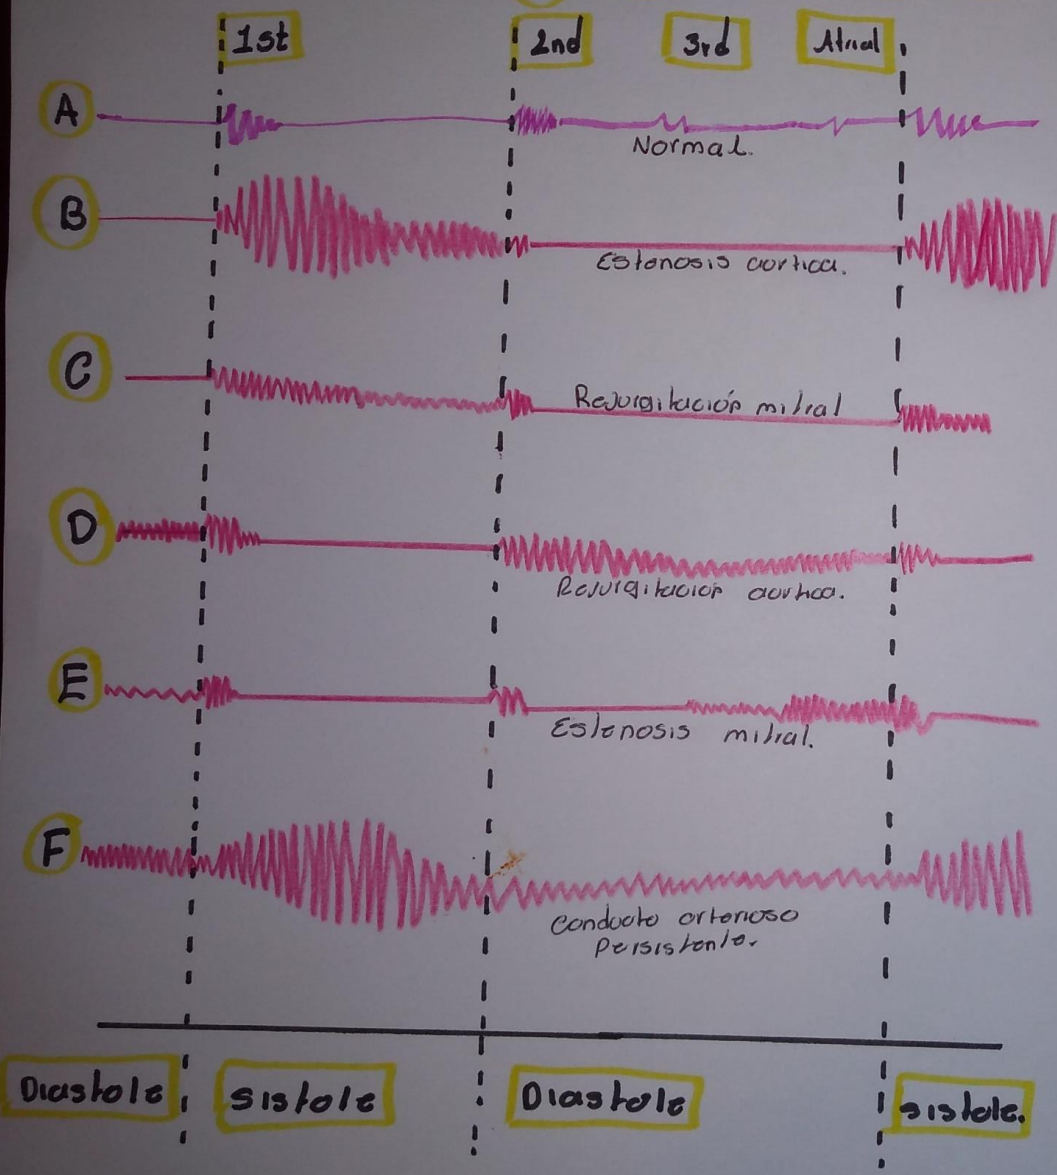 1st 2nd 3rd Atrial
A
Normal.
B
Estenosis aortica.
C
Regurgitación mitral
D
Regurgitación aortica.
E
Estenosis mitral.
F
Conducto arterioso
Persistente.
Diastole Sistole Diastole sistole.